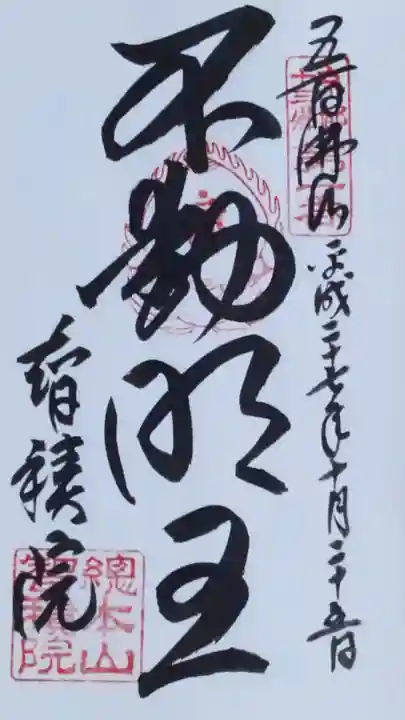 平成二十七年十月二十五日
不動明王
智積院
總本山
智積院